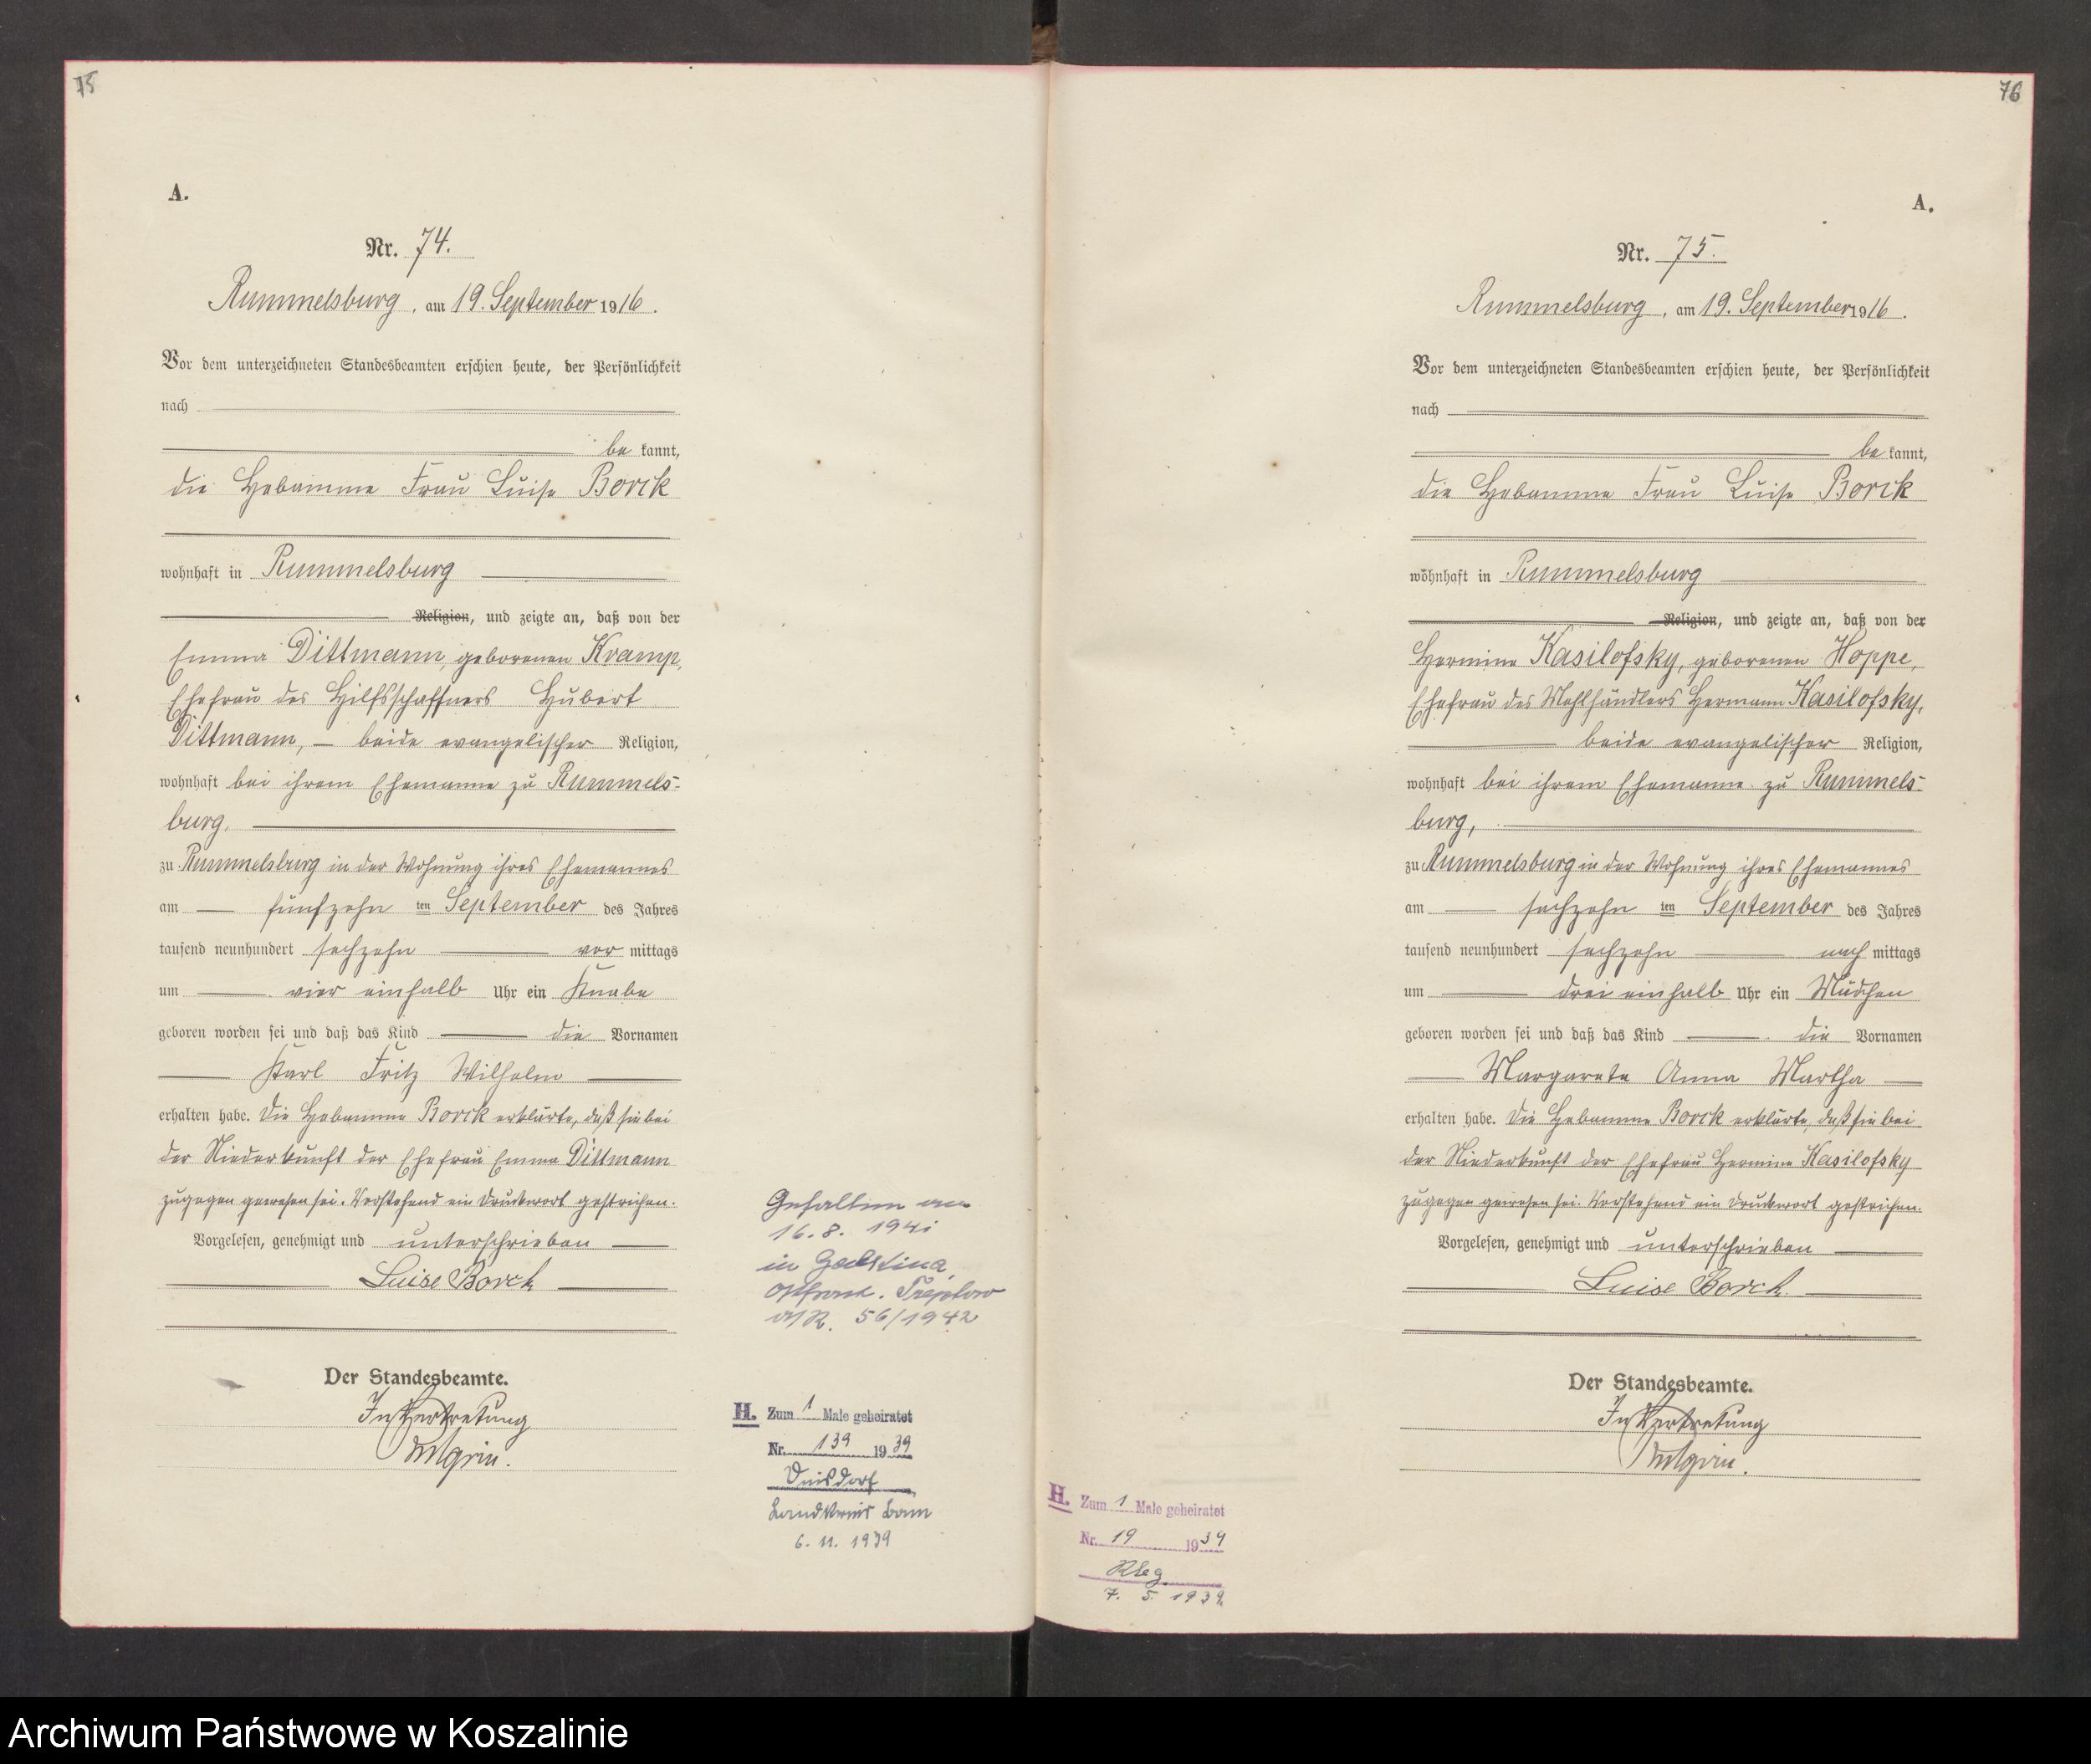 75
A.
Nr. 74.
Rummelsburg, am 19. September 1916.
Vor dem unterzeichneten Standesbeamten erschien heute, der Persönlichkeit
nach
be kannt,
die Hebamme Frau Luise Borck
wohnhaft in Rummelsburg
Religion, und zeigte an, daß von der
Emma Dittmann, geborenen Kramp,
Ehefrau des Hilfsschaffners Hubert
Dittmann, – beide evangelischer Religion,
wohnhaft bei ihrem Ehemanne zu Rummels-
burg,
zu Rummelsburg in der Wohnung ihres Ehemannes
am fünfzehn ten September des Jahres
tausend neunhundert sechzehn vor mittags
um vier einhalb Uhr ein Knabe
geboren worden sei und daß das Kind die Vornamen
Karl Fritz Wilhelm
erhalten habe. Die Hebamme Borck erklärte, daß sie bei
der Niederkunft der Ehefrau Emma Dittmann
zugegen gewesen sei. Vorstehend ein Druckwort gestrichen.
Vorgelesen, genehmigt und unterschrieben
Luise Borck
Der Standesbeamte.
In Vertretung
Gefallen am
16. 8. 1941
in
Ostfront. Treptow
a/R. 56/1942
H. Zum 1 Male geheiratet
Nr. 139 1939
Duisdorf
Landkreis Bonn
6. 11. 1939
76
A.
Nr. 75.
Rummelsburg, am 19. September 1916.
Vor dem unterzeichneten Standesbeamten erschien heute, der Persönlichkeit
nach
be kannt,
die Hebamme Frau Luise Borck
wohnhaft in Rummelsburg
Religion, und zeigte an, daß von der
Hermine Kasilofsky, geborenen Hoppe,
Ehefrau des Mehlhändlers Hermann Kasilofsky,
beide evangelischer Religion,
wohnhaft bei ihrem Ehemanne zu Rummels-
burg,
zu Rummelsburg in der Wohnung ihres Ehemannes
am sechzehn ten September des Jahres
tausend neunhundert sechzehn nach mittags
um drei einhalb Uhr ein Mädchen
geboren worden sei und daß das Kind die Vornamen
Margarete Anna Martha
erhalten habe. Die Hebamme Borck erklärte, daß sie bei
der Niederkunft der Ehefrau Hermine Kasilofsky
zugegen gewesen sei. Vorstehend ein Druckwort gestrichen.
Vorgelesen, genehmigt und unterschrieben
Luise Borck
Der Standesbeamte.
In Vertretung
H. Zum 1 Male geheiratet
Nr. 19 1934
Rbg.
7. 5. 1934
Archiwum Państwowe w Koszalinie